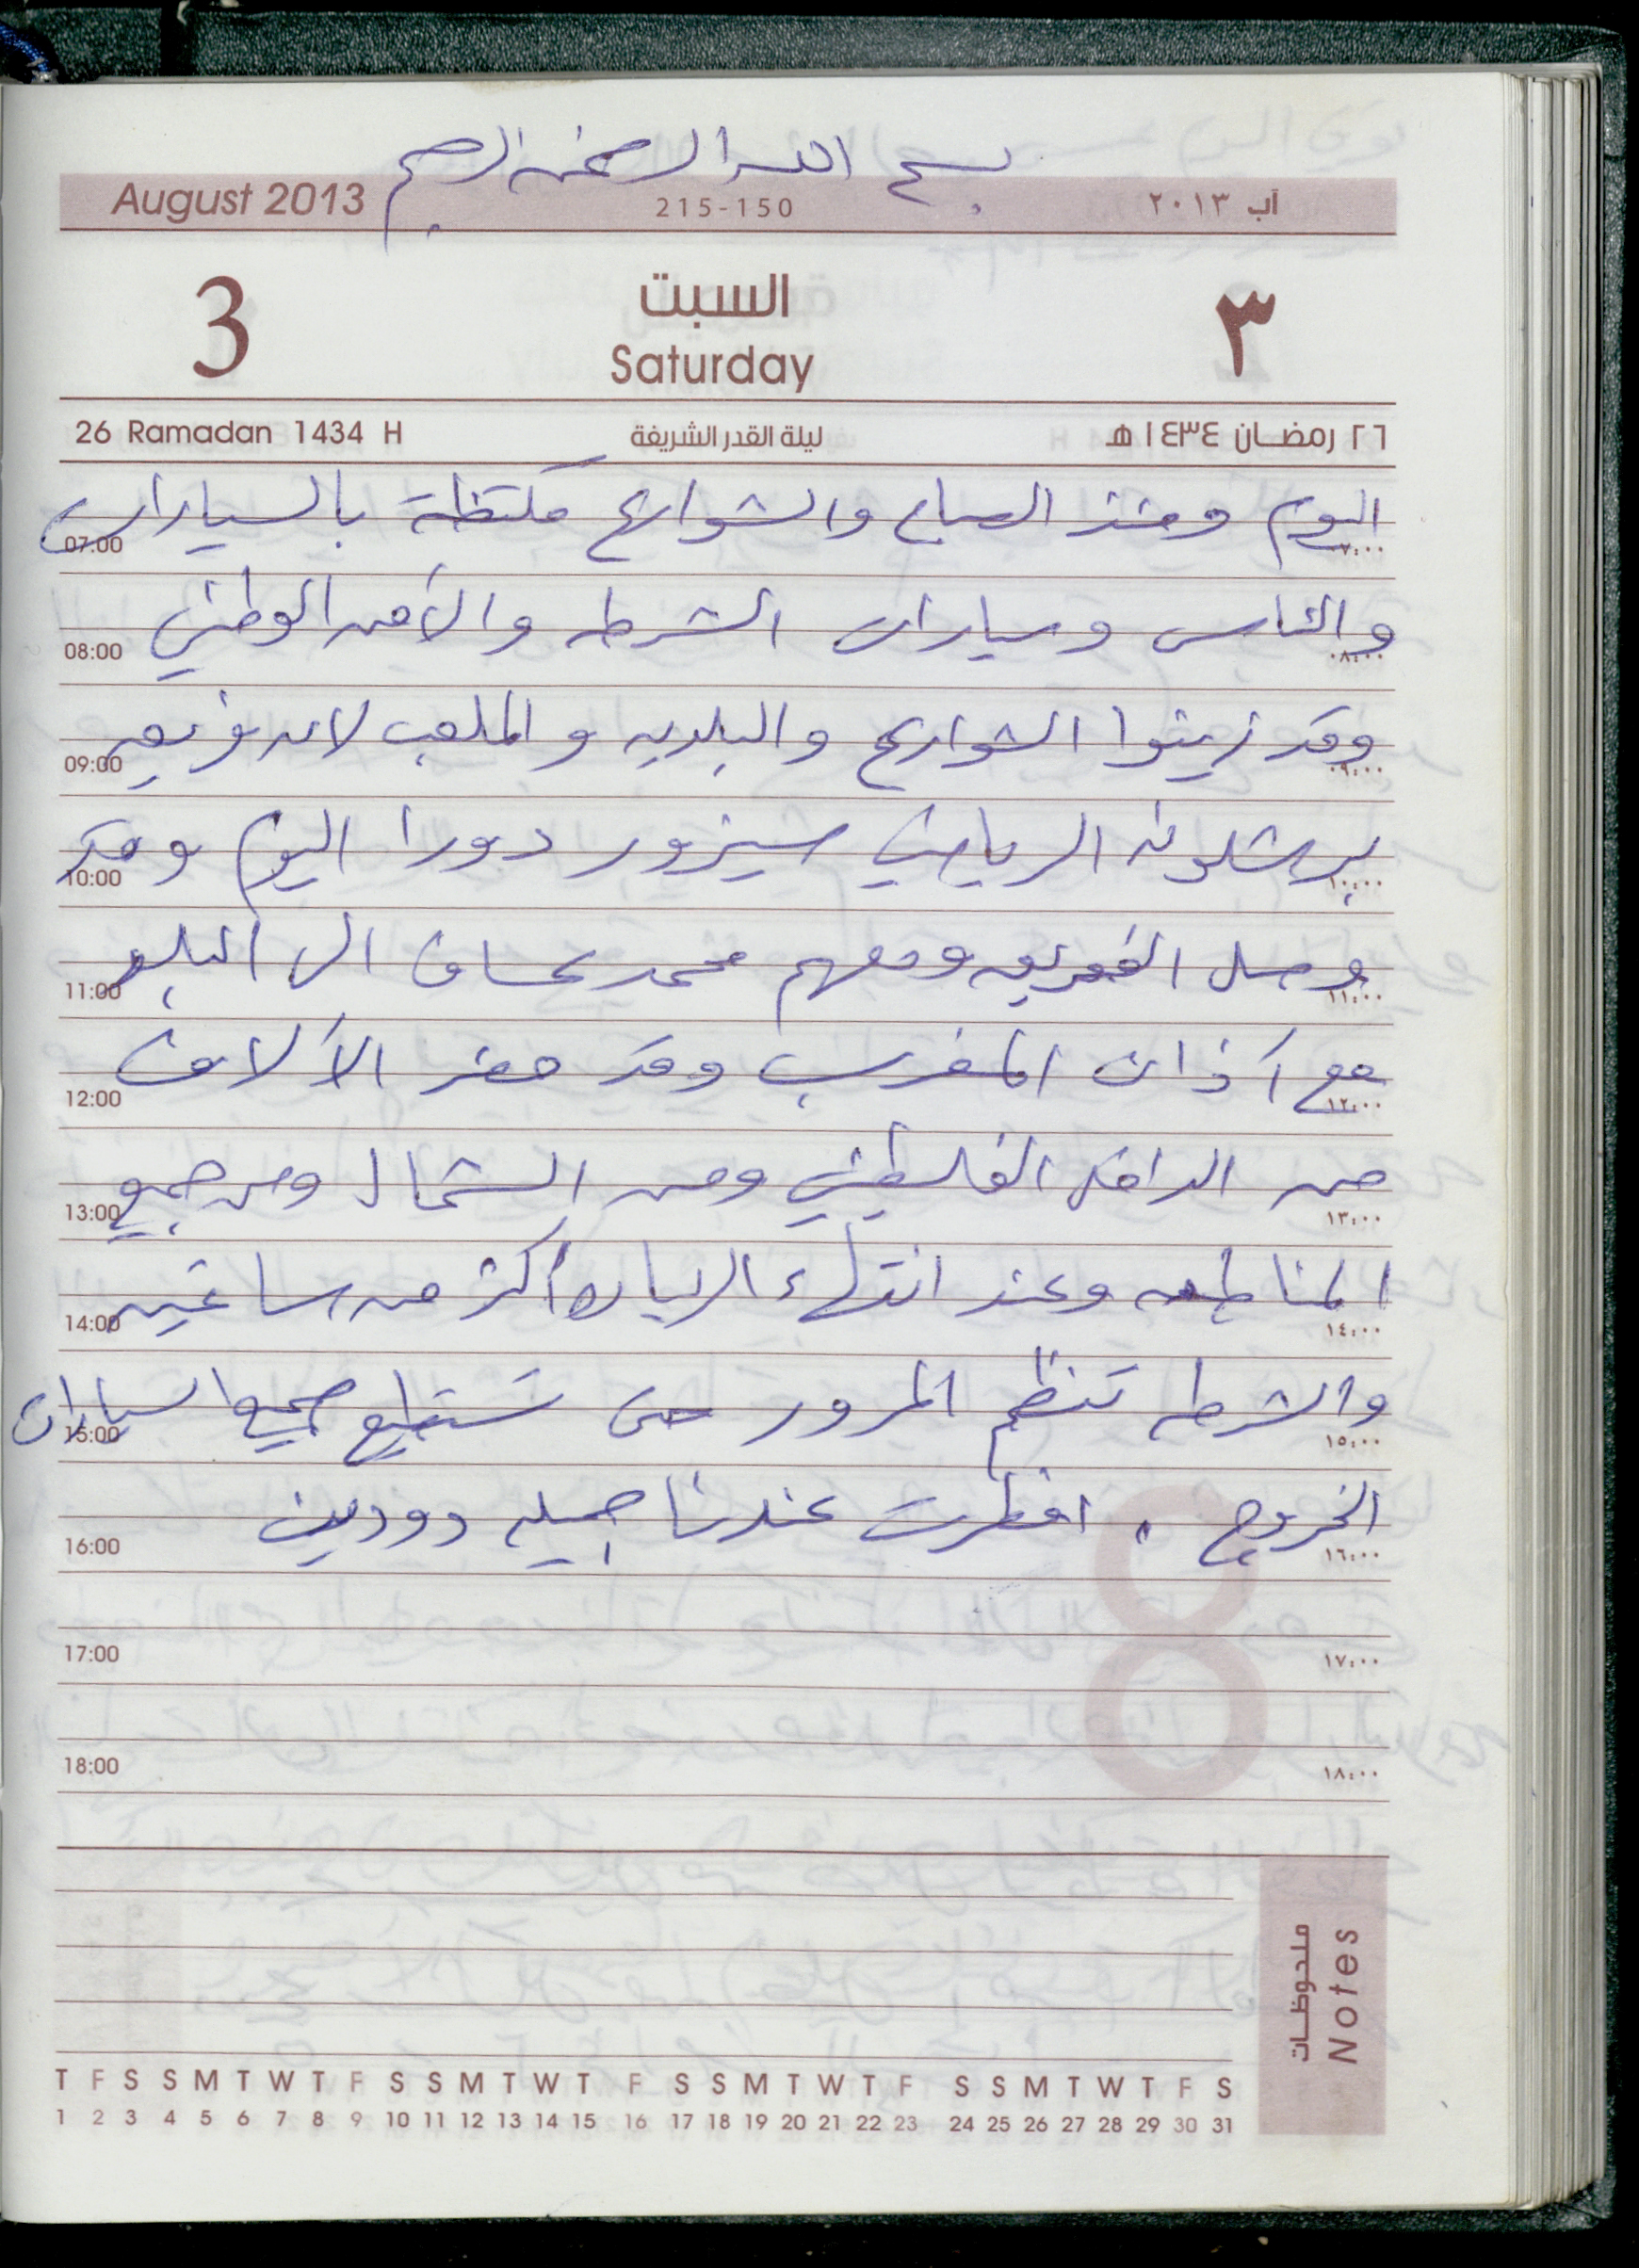 بسم الله الرحمن الرحيم
August 2013 215-150 آب ٢٠١٣
3 السبت ٣
Saturday
26 Ramadan 1434 H ليلة القدر الشريفة ٢٦ رمضان ١٤٣٤ هـ
اليوم ومنذ الصباح والشوارع مكتظة بالسيارات
07:00 ٠٧:٠٠
والناس وسيارات الشرطه والأمن الوطني
08:00 ٠٨:٠٠
وقد زينوا الشوارع والبلديه والملعب لان فريق
09:00 ٠٩:٠٠
برشلونه الرياضي سيزور دورا اليوم وقد
10:00 ١٠:٠٠
وصل الفريق ومعهم محمد عساف الى البلد
11:00 ١١:٠٠
مع آذان المغرب وقد حضر الآلاف
12:00 ١٢:٠٠
من الداخل الفلسطيني ومن الشمال ومن جميع
13:00 ١٣:٠٠
المناطق وعند انتهاء الزياره أكثر من ساعتين
14:00 ١٤:٠٠
والشرطه تنظم المرور حتى تستطيع جميع السيارات
15:00 ١٥:٠٠
الخروج . افطرت عندنا جميله دودين
16:00 ١٦:٠٠
17:00 ١٧:٠٠
18:00 ١٨:٠٠
8
ملحوظات
Notes
T F S S M T W T F S S M T W T F S S M T W T F S S M T W T F S
1 2 3 4 5 6 7 8 9 10 11 12 13 14 15 16 17 18 19 20 21 22 23 24 25 26 27 28 29 30 31